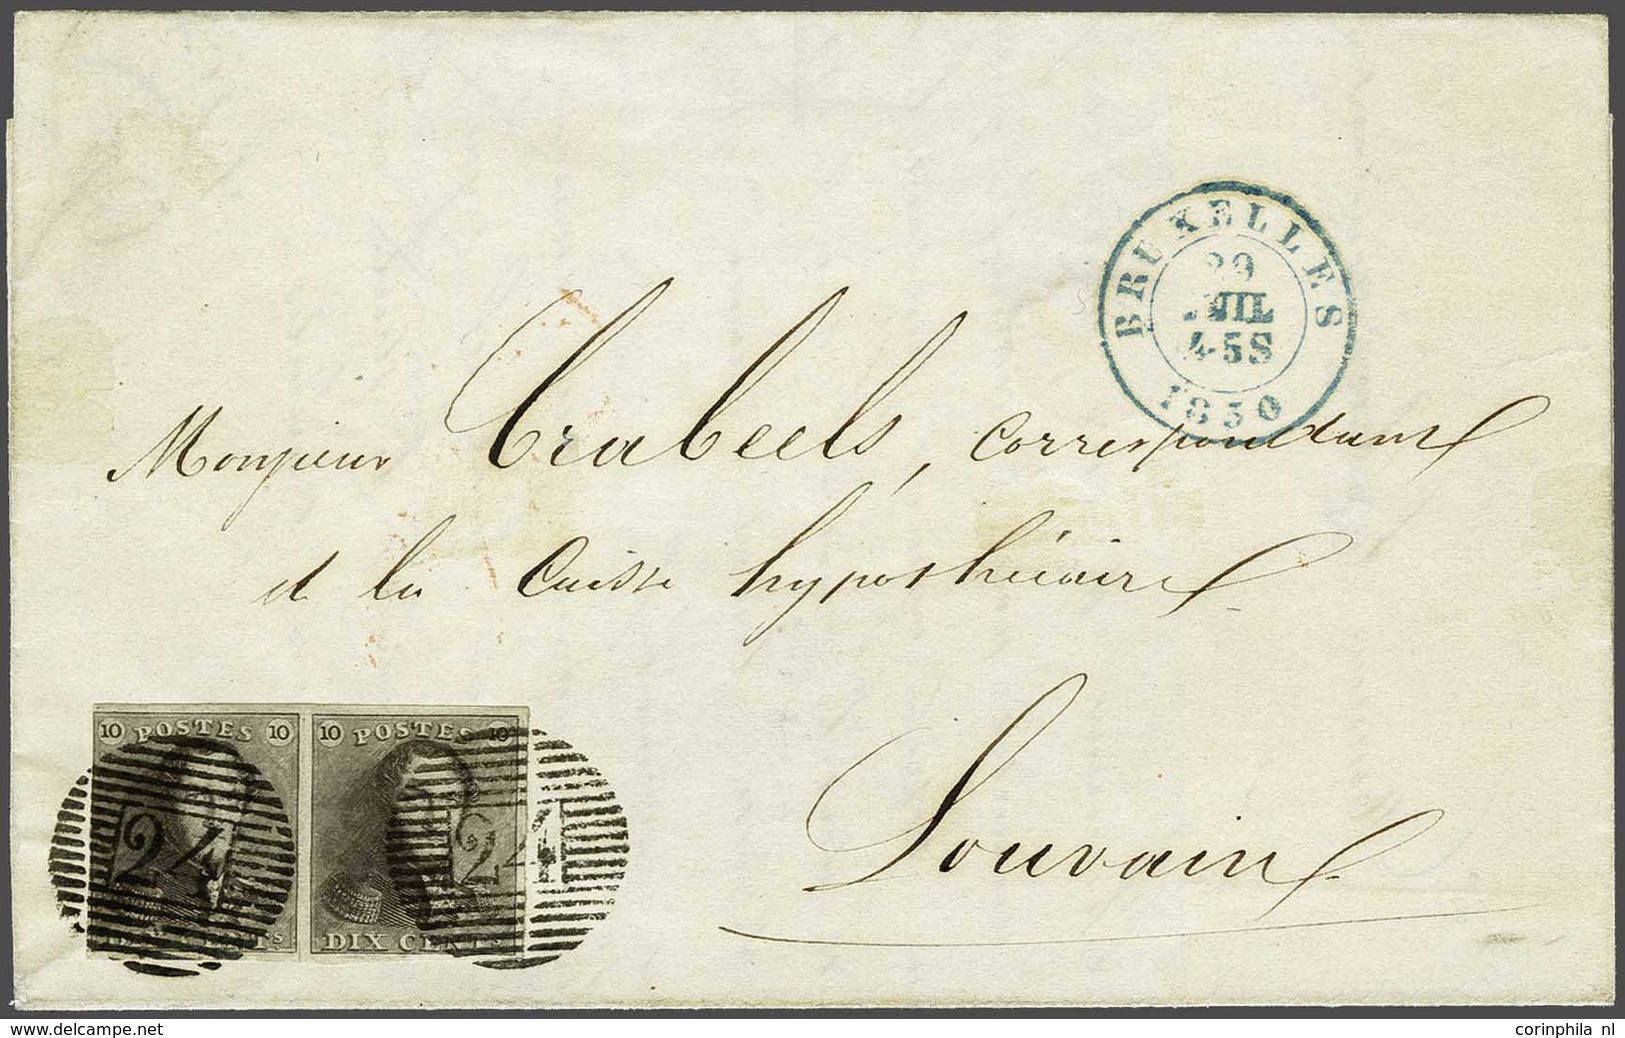 BRUXELLES
29
JUIL
4-5S
1850
Monsieur Trabeels, Correspondant
de la Caisse hypothécaire
Louvain
10 POSTES 10 10 POSTES 10
24 24
DIX CENTS DIX CENTS
www.delcampe.net
corinphila nl